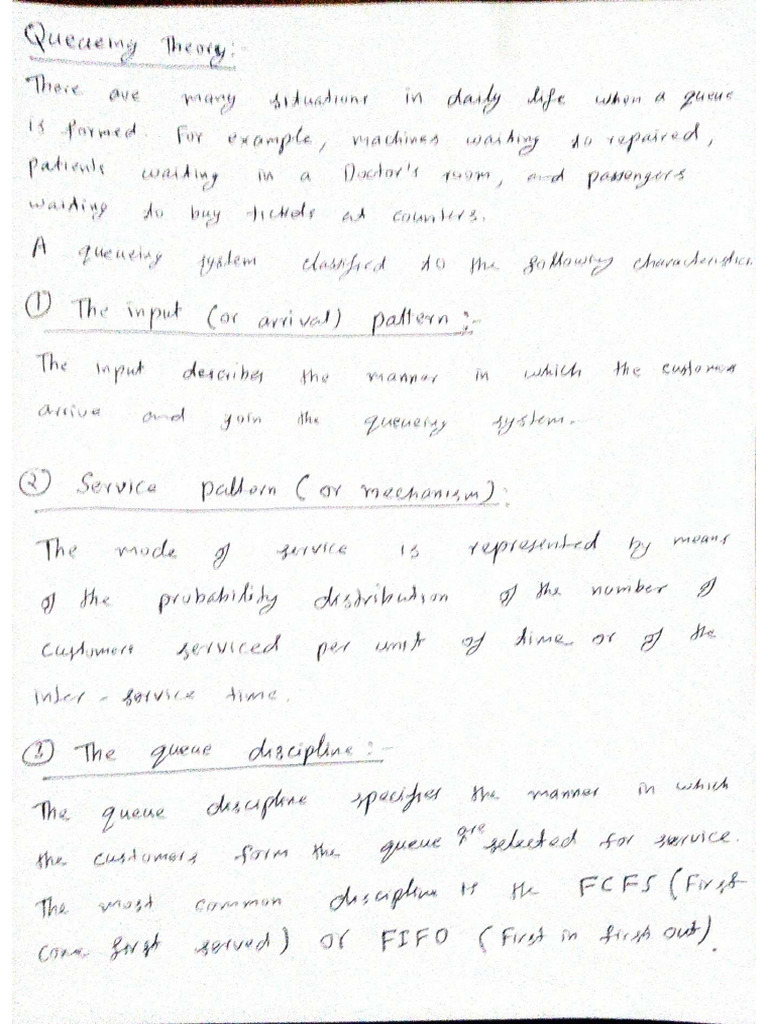 Queueing Theory:-
There are many situations in daily life when a queue
is formed. For example, machines waiting to repaired,
patients waiting in a Doctor's room, and passengers
waiting to buy tickets at counters.
A queueing system classified to the following characteristics.
① The input (or arrival) pattern :-
The input describes the manner in which the customers
arrive and join the queueing system.
② Service pattern (or mechanism):
The mode of service is represented by means
of the probability distribution of the number of
customers serviced per unit of time or of the
inter-service time.
③ The queue discipline :-
The queue discipline specifies the manner in which
the customers form the queue are selected for service.
The most common discipline is the FCFS (First
come first served) or FIFO (First in first out).